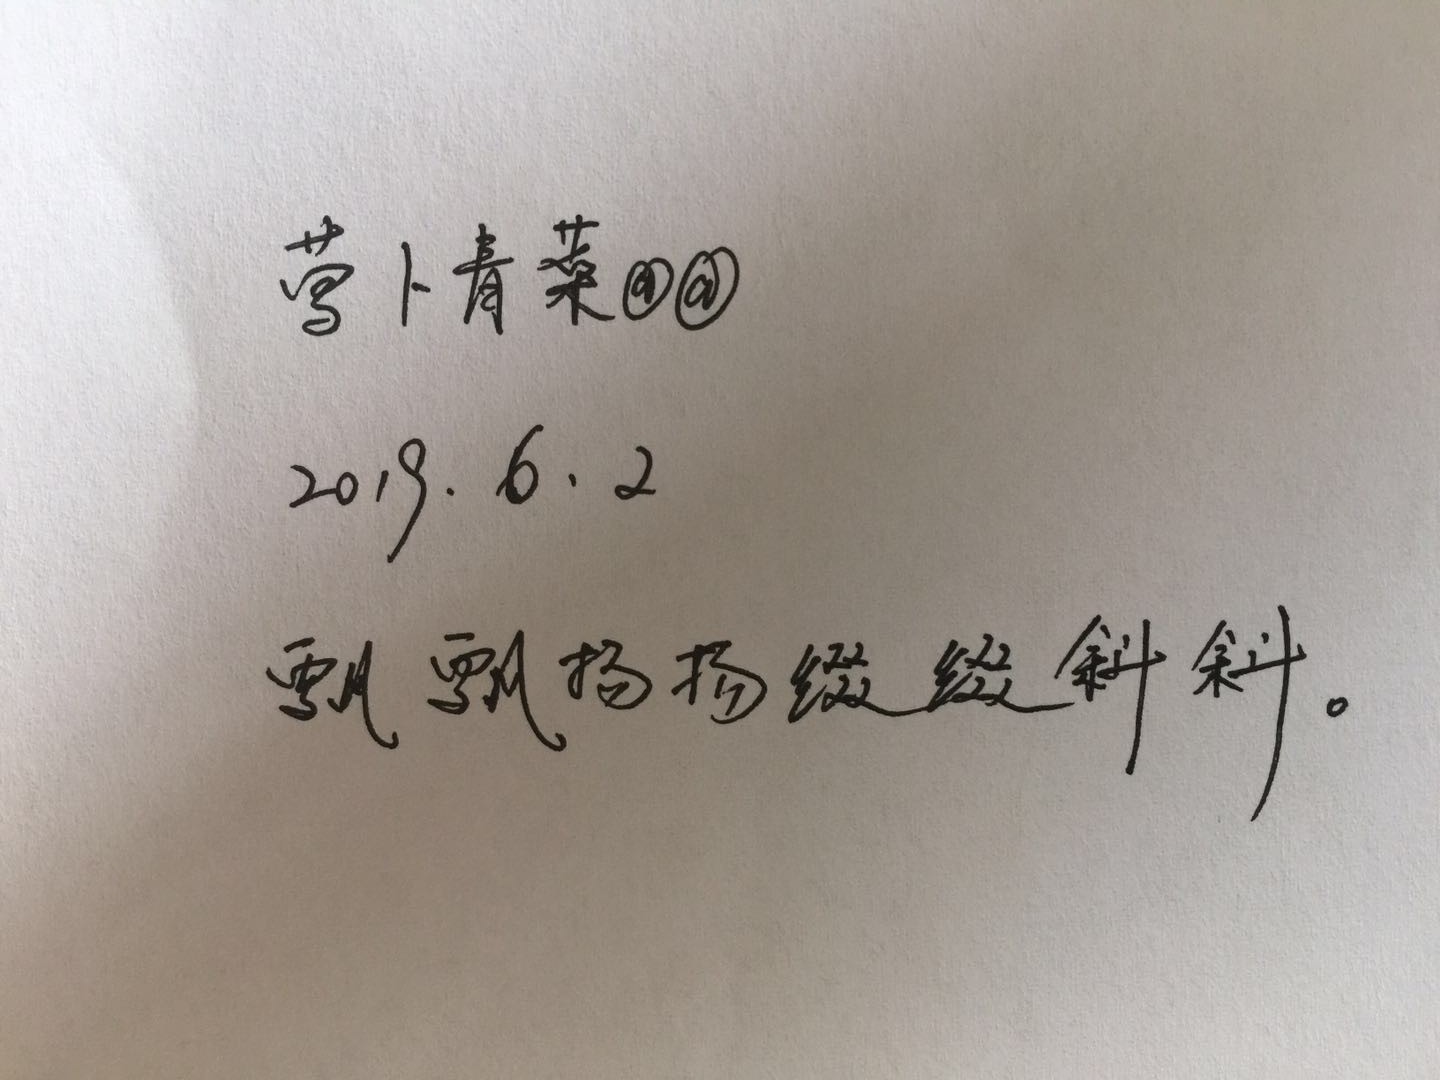 萝卜青菜@@
2019.6.2
飘飘扬扬缀缀斜斜。